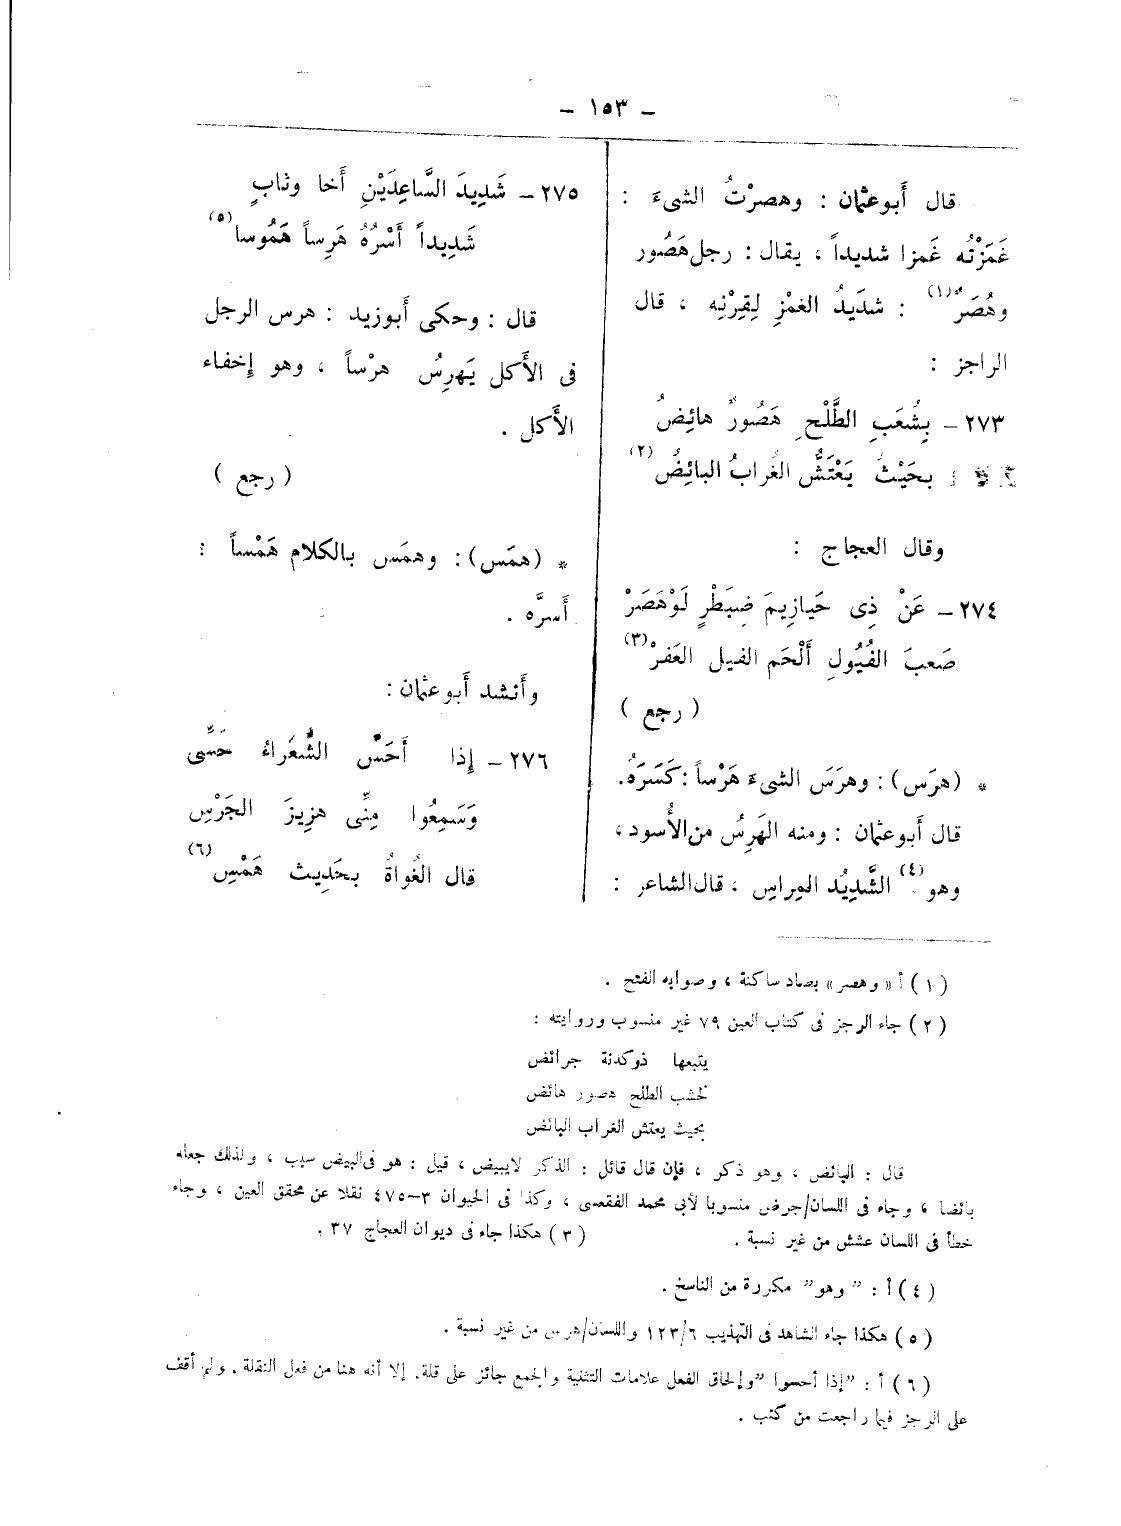 – ١٥٣ –
قال أَبو عثمان : وهصرْتُ الشىءَ :
غَمَزْتُه غَمزا شديداً ، يقال : رجل هَصُور
وهُصَرٌ (١) : شدَيدُ الغمْزِ لِقِرْنِه ، قال
الراجز :
٢٧٣ – بِشُعَبِ الطَّلْحِ هَصُورٌ هائِضُ
بحَيْثُ يَعْتَشُّ الغُرابُ البائِضُ (٢)
وقال العجاج :
٢٧٤ – عَنْ ذِى حَيازِيمَ ضِبَطْرٍ لَوْهَصَرْ
صَعبَ الفُيُولِ أَلْحَم الفيل العَفرْ (٣)
( رجع )
* (هرَس) : وهرَسَ الشىءَ هَرْساً : كَسَرَهُ.
قال أَبو عثمان : ومنه الهَرِسُ من الأُسود ،
وهو (٤) الشَّدِيُد المِراسِ ، قال الشاعر :
٢٧٥ – شَدِيدَ السَّاعِدَيْنِ أَخا وثابٍ
شَدِيداً أَسْرُهُ هَرِساً هَمُوسا (٥)
قال : وحكى أَبوزيد : هرس الرجل
فى الأَكل يَهرِسُ هرْساً ، وهو إِخفاء
الأَكل .
( رجع )
* (همَس) : وهمَس بالكلام هَمْساً :
أَسرَّه .
وأَنشد أَبو عثمان :
٢٧٦ – إِذا أَحَسَّ الشُّعَراءُ حَسِّى
وَسَمِعُوا مِنِّى هزِيزَ الجَرْسِ
قال الغُواةُ بحَدِيث هَمْسِ (٦)
(١) أ «وهصر» بصاد ساكنة ، وصوابه الفتح .
(٢) جاء الرجز فى كتاب العين ٧٩ غير منسوب وروايته :
يتبعها ذوكدنة جرائض
لخشب الطلح هصور هائض
بحيث يعتش الغراب البائض
قال : البائض ، وهو ذكر ، فإن قال قائل : الذكر لايبيض ، قيل : هو فى البيض سبب ، ولذلك جعله
بائضا ، وجاء فى اللسان/جرض منسوبا لأبى محمد الفقعسى ، وكذا فى الحيوان ٣–٤٧٥ نقلا عن محقق العين ، وجاء
خطأ فى اللسان عشش من غير نسبة . (٣) هكذا جاء فى ديوان العجاج ٣٧ .
(٤) أ : ” وهو” مكررة من الناسخ .
(٥) هكذا جاء الشاهد فى التهذيب ٦/١٢٣ واللسان/هرس من غير نسبة .
(٦) أ : ”إذا أحسوا ”وإلحاق الفعل علامات التثنية والجمع جائز على قلة. إلا أنه هنا من فعل النقلة . ولم أقف
على الرجز فيما راجعت من كتب .